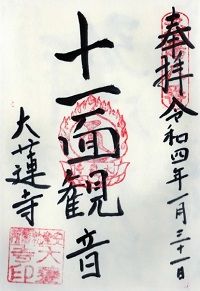 奉拝
令和四年一月三十一日
十一面観音
大蓮寺